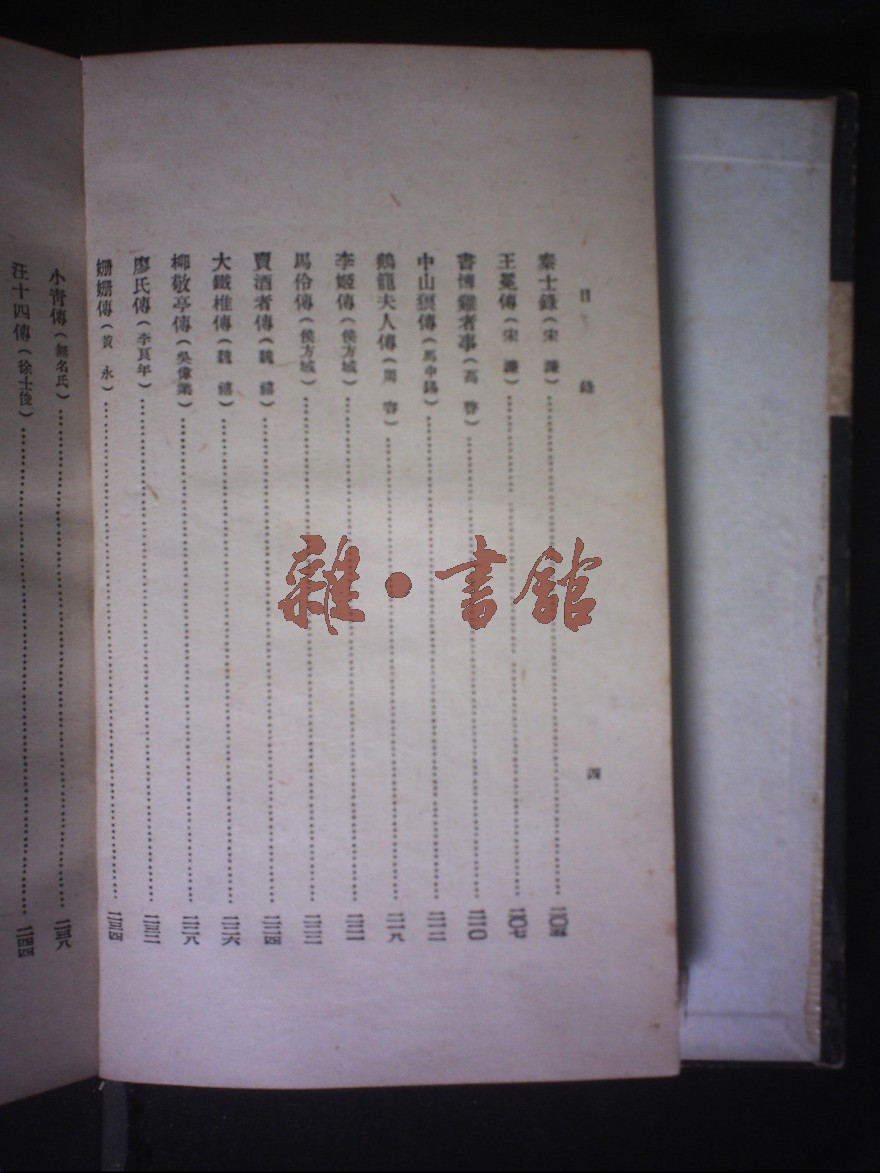 目錄 四
秦士錄(宋濂)……二〇五
王冕傳(宋濂)……二〇七
書博雞者事(高啓)……二一〇
中山狼傳(馬中錫)……二一二
鵝籠夫人傳(周容)……二一八
李姬傳(侯方域)……二二一
馬伶傳(侯方域)……二二二
賣酒者傳(魏禧)……二二四
大鐵椎傳(魏禧)……二二六
柳敬亭傳(吳偉業)……二二八
廖氏傳(李良年)……二三二
姍姍傳(黃永)……二三四
小靑傳(無名氏)……二三八
汪十四傳(徐士俊)……二四四
雜·書館